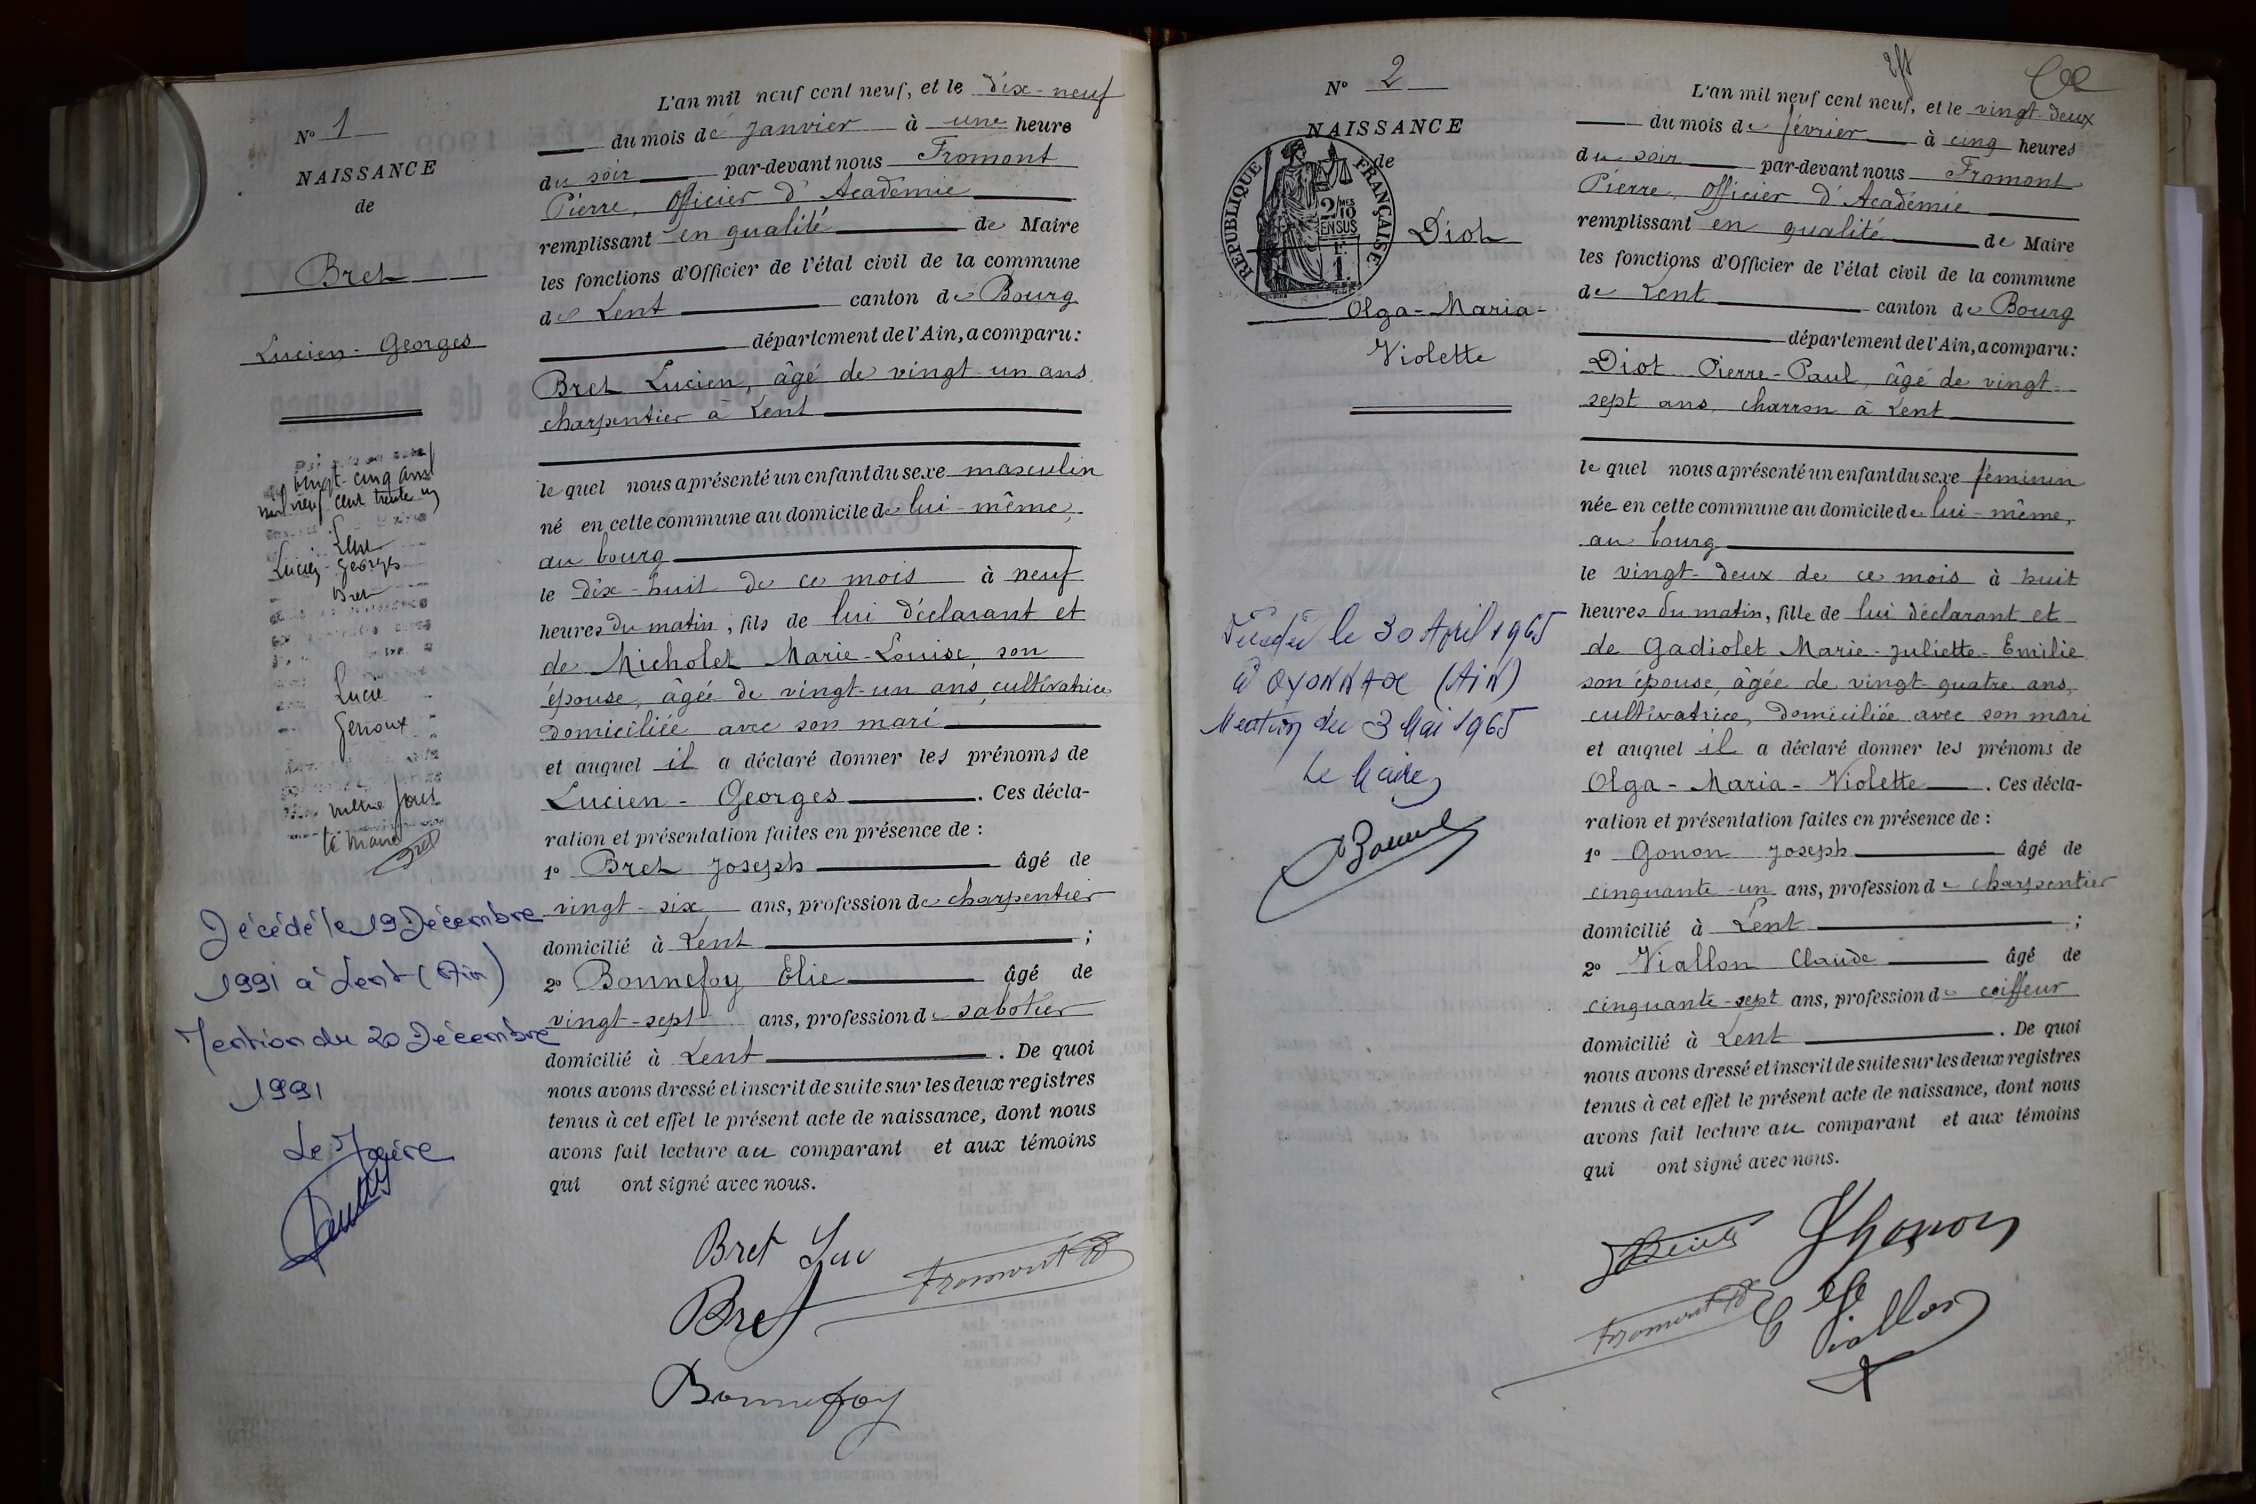 N° 1
NAISSANCE
de
Bret
Lucien - Georges
vingt-cinq avril
mil neuf cent trente un
Lent
Lucien - Georges
Bret
Lucie
Genoux
même jour
Le Maire
Bret
Décédé le 19 Décembre
1991 à Lent (Ain)
Mention du 20 Décembre
1991
Le Maire
L'an mil neuf cent neuf, et le dix-neuf
du mois de Janvier à une heure
du soir par-devant nous Fromont
Pierre, Officier d'Académie
remplissant en qualité de Maire
les fonctions d'Officier de l'état civil de la commune
de Lent canton de Bourg
département de l'Ain, a comparu:
Bret Lucien, âgé de vingt-un ans
charpentier à Lent
le quel nous a présenté un enfant du sexe masculin
né en cette commune au domicile de lui-même,
au bourg
le dix-huit de ce mois à neuf
heures du matin, fils de lui déclarant et
de Micholet Marie-Louise, son
épouse, âgée de vingt-un ans, cultivatrice
domiciliée avec son mari
et auquel il a déclaré donner les prénoms de
Lucien - Georges . Ces décla-
ration et présentation faites en présence de :
1° Bret Joseph âgé de
vingt-six ans, profession de charpentier
domicilié à Lent ;
2° Bonnefoy Elie âgé de
vingt-sept ans, profession de sabotier
domicilié à Lent . De quoi
nous avons dressé et inscrit de suite sur les deux registres
tenus à cet effet le présent acte de naissance, dont nous
avons fait lecture au comparant et aux témoins
qui ont signé avec nous.
Bret Luc
Fromont
Bret
Bonnefoy
N° 2
NAISSANCE
de
RÉPUBLIQUE FRANÇAISE
2/10 MES
EN SUS
Diot
Olga - Maria -
Violette
Décédée le 30 April 1965
à OYONNAX (AIN)
Mention du 3 Mai 1965
Le Maire
L'an mil neuf cent neuf, et le vingt-deux
du mois de février à cinq heures
du soir par-devant nous Fromont
Pierre, Officier d'Académie
remplissant en qualité de Maire
les fonctions d'Officier de l'état civil de la commune
de Lent canton de Bourg
département de l'Ain, a comparu:
Diot Pierre-Paul, âgé de vingt-
sept ans, charron à Lent
le quel nous a présenté un enfant du sexe féminin
née en cette commune au domicile de lui-même,
au bourg
le vingt-deux de ce mois à huit
heures du matin, fille de lui déclarant et
de Gadiolet Marie-Juliette-Emilie
son épouse, âgée de vingt-quatre ans,
cultivatrice, domiciliée avec son mari
et auquel il a déclaré donner les prénoms de
Olga - Maria - Violette . Ces décla-
ration et présentation faites en présence de :
1° Gonon Joseph âgé de
cinquante-un ans, profession de charpentier
domicilié à Lent ;
2° Viallon Claude âgé de
cinquante-sept ans, profession de coiffeur
domicilié à Lent . De quoi
nous avons dressé et inscrit de suite sur les deux registres
tenus à cet effet le présent acte de naissance, dont nous
avons fait lecture au comparant et aux témoins
qui ont signé avec nous.
Gonon
Fromont
C Viallon